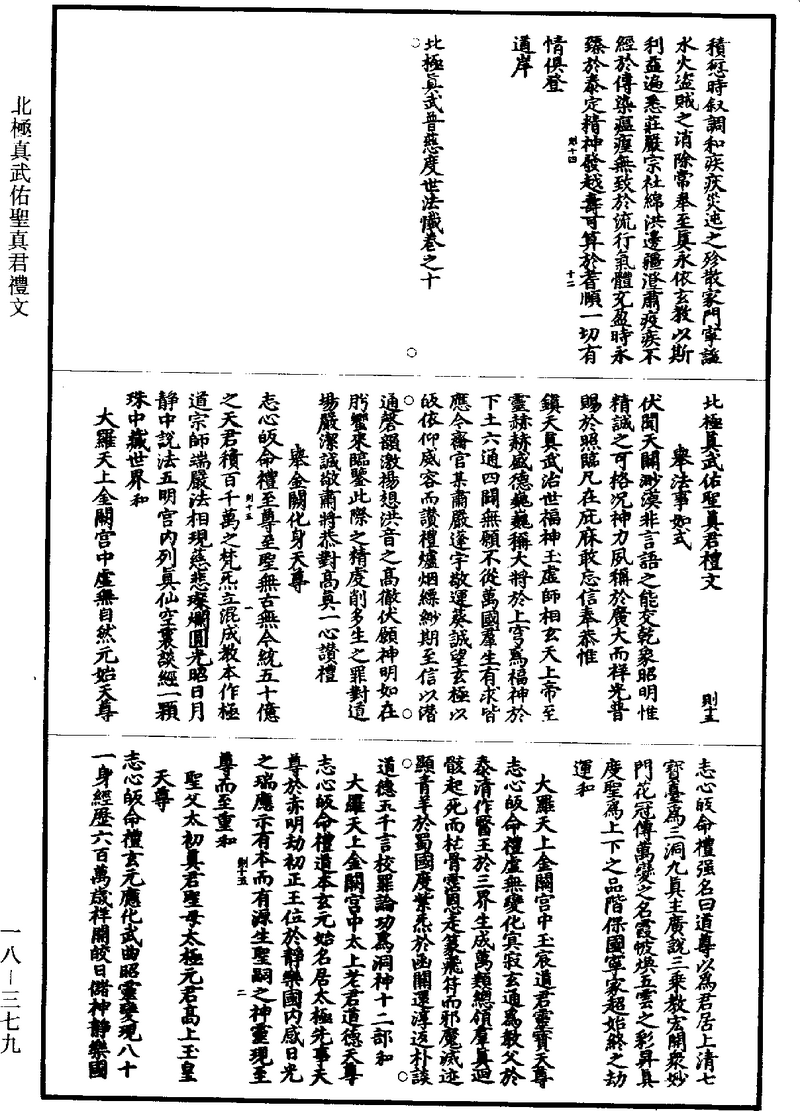 積愆時叙調和疾疫災迍之殄散家門寧謐
水火盜賊之消除常奉至真永依玄教以斯
利益遍悉莊嚴宗社綿洪邊疆澄肅疫疾不
經於傳染瘟瘴無致於流行氣體充盈時永
臻於泰定精神發越壽可算於耆頤一切有
則十四
十二
情俱登
道岸
北極真武普慈度世法懺卷之十
北極真武佑聖真君禮文
則十五
舉法事如式
伏聞天闕渺漠非言語之能交乾象昭明惟
精誠之可格况神力夙稱於廣大而祥光普
賜於照臨凡在庇庥敢忘信奉恭惟
鎮天真武治世福神玉虛師相玄天上帝至
靈赫赫盛德巍巍稱大將於上宮爲福神於
下土六通四闢無願不從萬國羣生有求皆
應今齋官某肅嚴邃宇敬運葵誠望玄極以
皈依仰威容而讚禮爐烟縹緲期至信以潛
通磬韻激揚想洪音之高徹伏願神明如在
肸蠁來臨鑒此際之精虔削多生之罪對道
場嚴潔誠敬肅將恭對高真一心讚禮
舉金闕化身天尊
志心皈命禮至尊至聖無古無今統五十億
之天君積百千萬之梵炁立混成教本作極
則十五
一
道宗師端嚴法相現慈悲璨爛圓光昭日月
静中說法五明宮内列真仙空裏談經一顆
珠中藏世界和
大羅天上金闕宮中虛無自然元始天尊
志心皈命禮强名曰道尊以爲君居上清七
寶臺爲三洞九真主廣說三乘教宏開衆妙
門花冠傳萬變之名霞帔煥五雲之彩昇真
度聖爲上下之品階保國寧家超始終之劫
運和
大羅天上金闕宮中玉宸道君靈寶天尊
志心皈命禮虛無變化寂玄通爲教父於
泰清作醫王於三界生成萬類總領羣真迴
骸起死而枯骨霑恩走篆飛符而邪魔滅迹
顯青羊於蜀國度紫炁於函關還淳返朴談
道德五千言校罪論功爲洞神十二部和
大羅天上金闕宮中太上老君道德天尊
志心皈命禮道本玄元始名居太極先事天
尊於赤明劫初正王位於静樂國内感日光
之瑞應示有本而有源生聖嗣之神靈現至
則十五
二
尊而至重和
聖父太初真君聖母太極元君高上玉皇
天尊
志心皈命禮玄元應化武曲昭靈變現八十
一身經歷六百萬歲祥開皎日儲神静樂國
北極真武佑聖真君禮文
一八—三七九